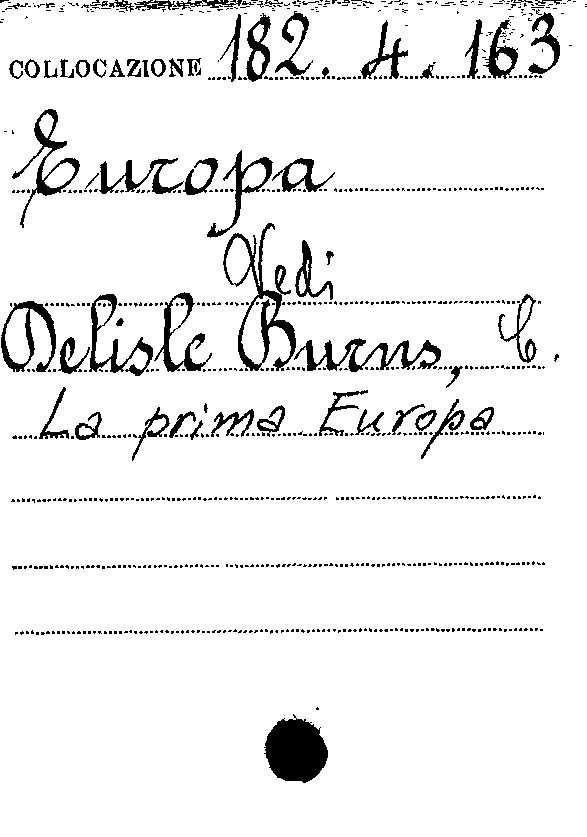 COLLOCAZIONE 182. 4. 163
Europa
Vedi
Delisle Burns, C.
La prima Europa